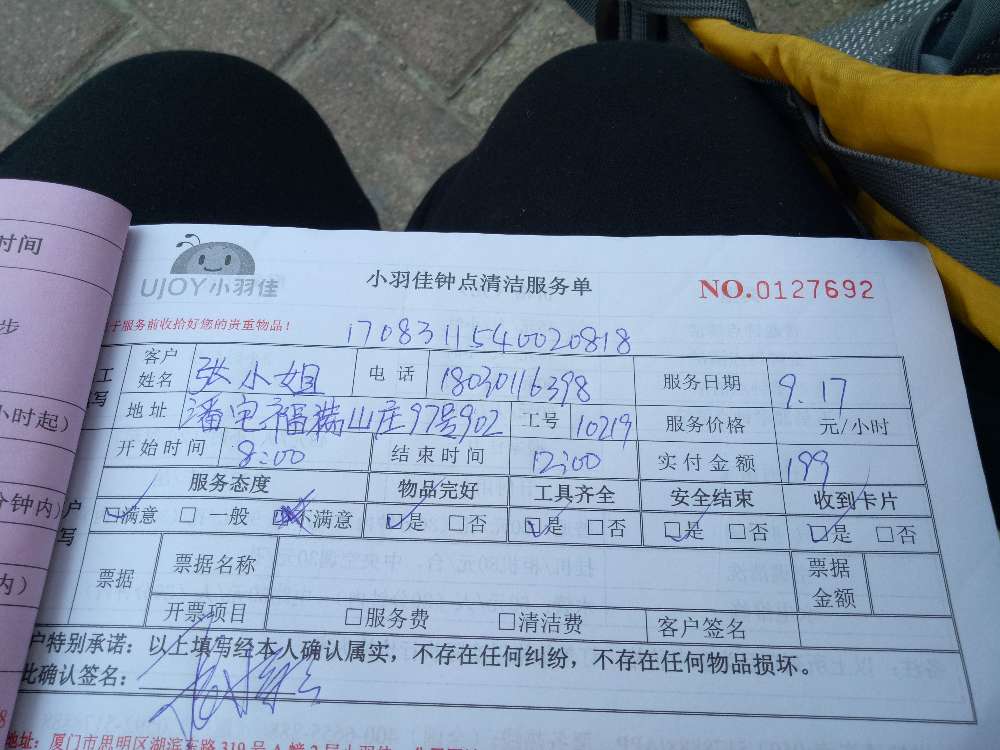 时间
步
小时起)
分钟内)
内)
UJOY小羽佳
小羽佳钟点清洁服务单
NO.0127692
于服务前收拾好您的贵重物品!
1708311540020818
工 客户姓名 张小姐 电话 18030116398 服务日期 9.17
写 地址 潘宅福满山庄97号902 工号 10219 服务价格 元/小时
开始时间 8:00 结束时间 12:00 实付金额 199
服务态度 物品完好 工具齐全 安全结束 收到卡片
户 □满意 □一般 □不满意 □是 □否 □是 □否 □是 □否 □是 □否
写 票据 票据名称 票据金额
开票项目 □服务费 □清洁费 客户签名
户特别承诺:以上填写经本人确认属实,不存在任何纠纷,不存在任何物品损坏。
此确认签名:
地址:厦门市思明区湖滨东路319号A幢2层小羽佳